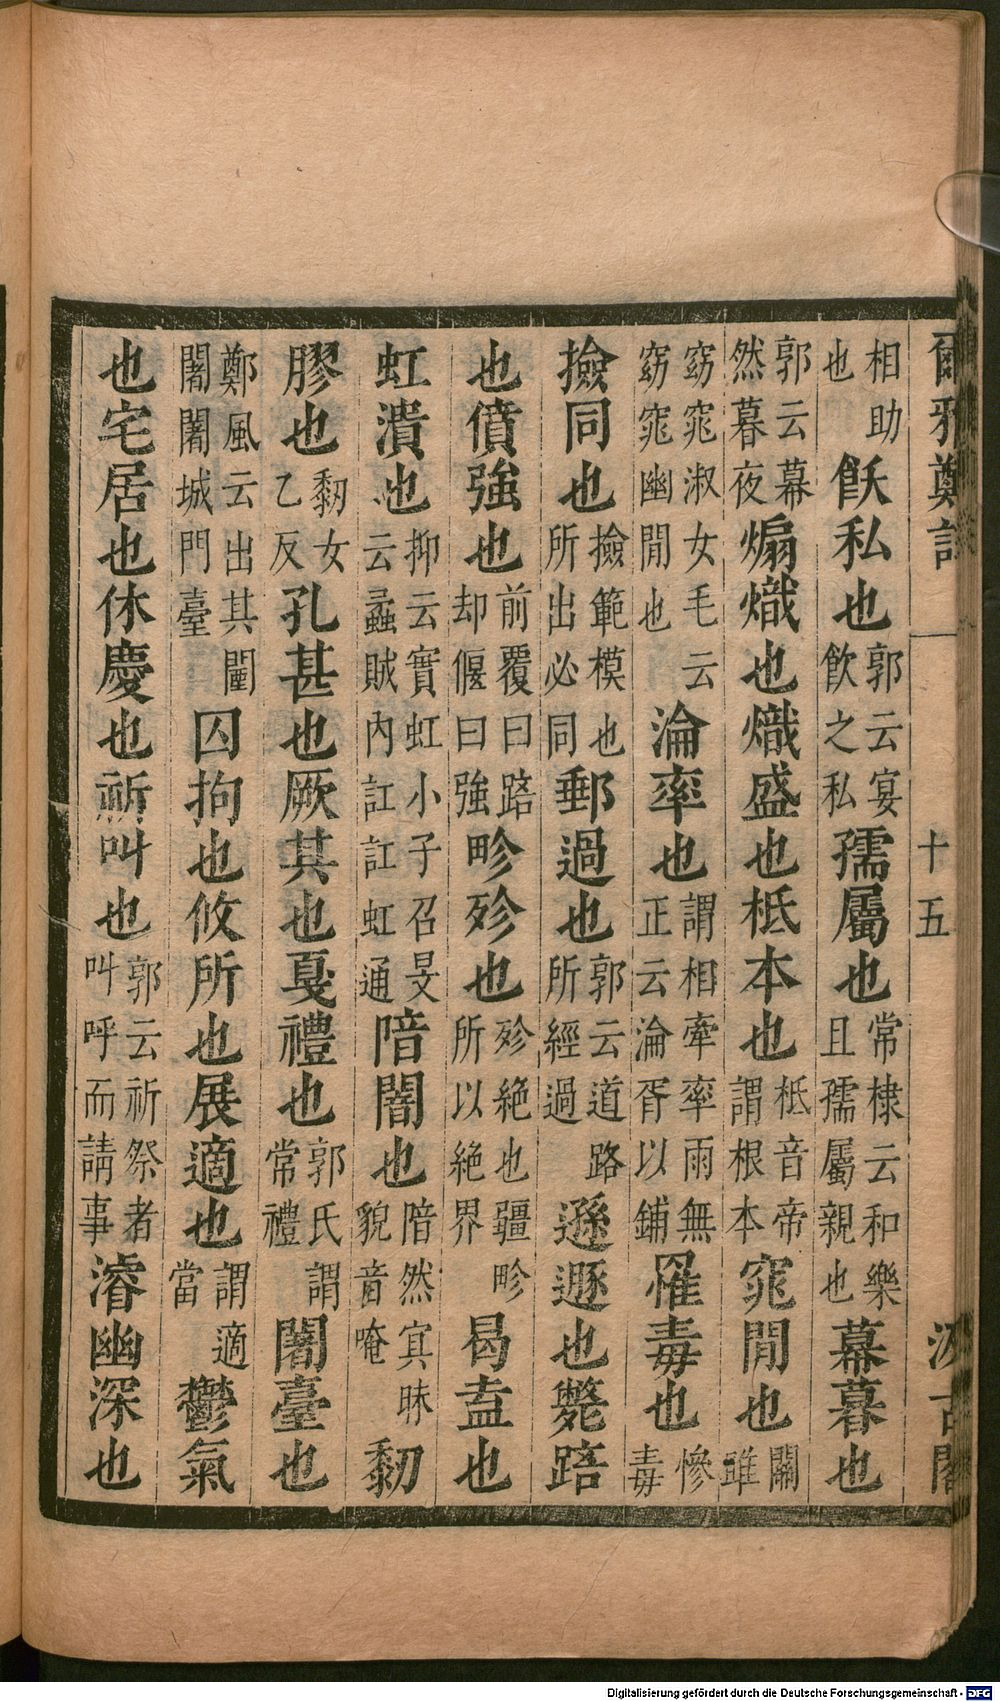 爾雅鄭註 十五 汲古閣
相助也飫私也郭云宴飲之私孺屬也常棣云和樂且孺屬親也幕暮也
郭云幕然暮夜煽熾也熾盛也柢本也柢音帝謂根本窕閒也關雎
窈窕淑女毛云窈窕幽閒也淪率也謂相牽率雨無正云淪胥以鋪罹毒也慘毒
撿同也撿範模也所出必同郵過也郭云道路所經過遜遯也斃踣
也僨強也前覆曰踣却偃曰強畛殄也殄絶也疆畛所以絶界曷盍也
虹潰也抑云實虹小子召旻云蟊賊內訌訌虹通陪闇也陪然冥昧貌音唵䵑
膠也䵑女乙反孔甚也厥其也戛禮也郭氏謂常禮闍臺也
鄭風云出其闉闍闍城門臺囚拘也攸所也展適也謂適當鬱氣
也宅居也休慶也祈叫也郭云祈祭者叫呼而請事濬幽深也
Digitalisierung gefördert durch die Deutsche Forschungsgemeinschaft - DFG